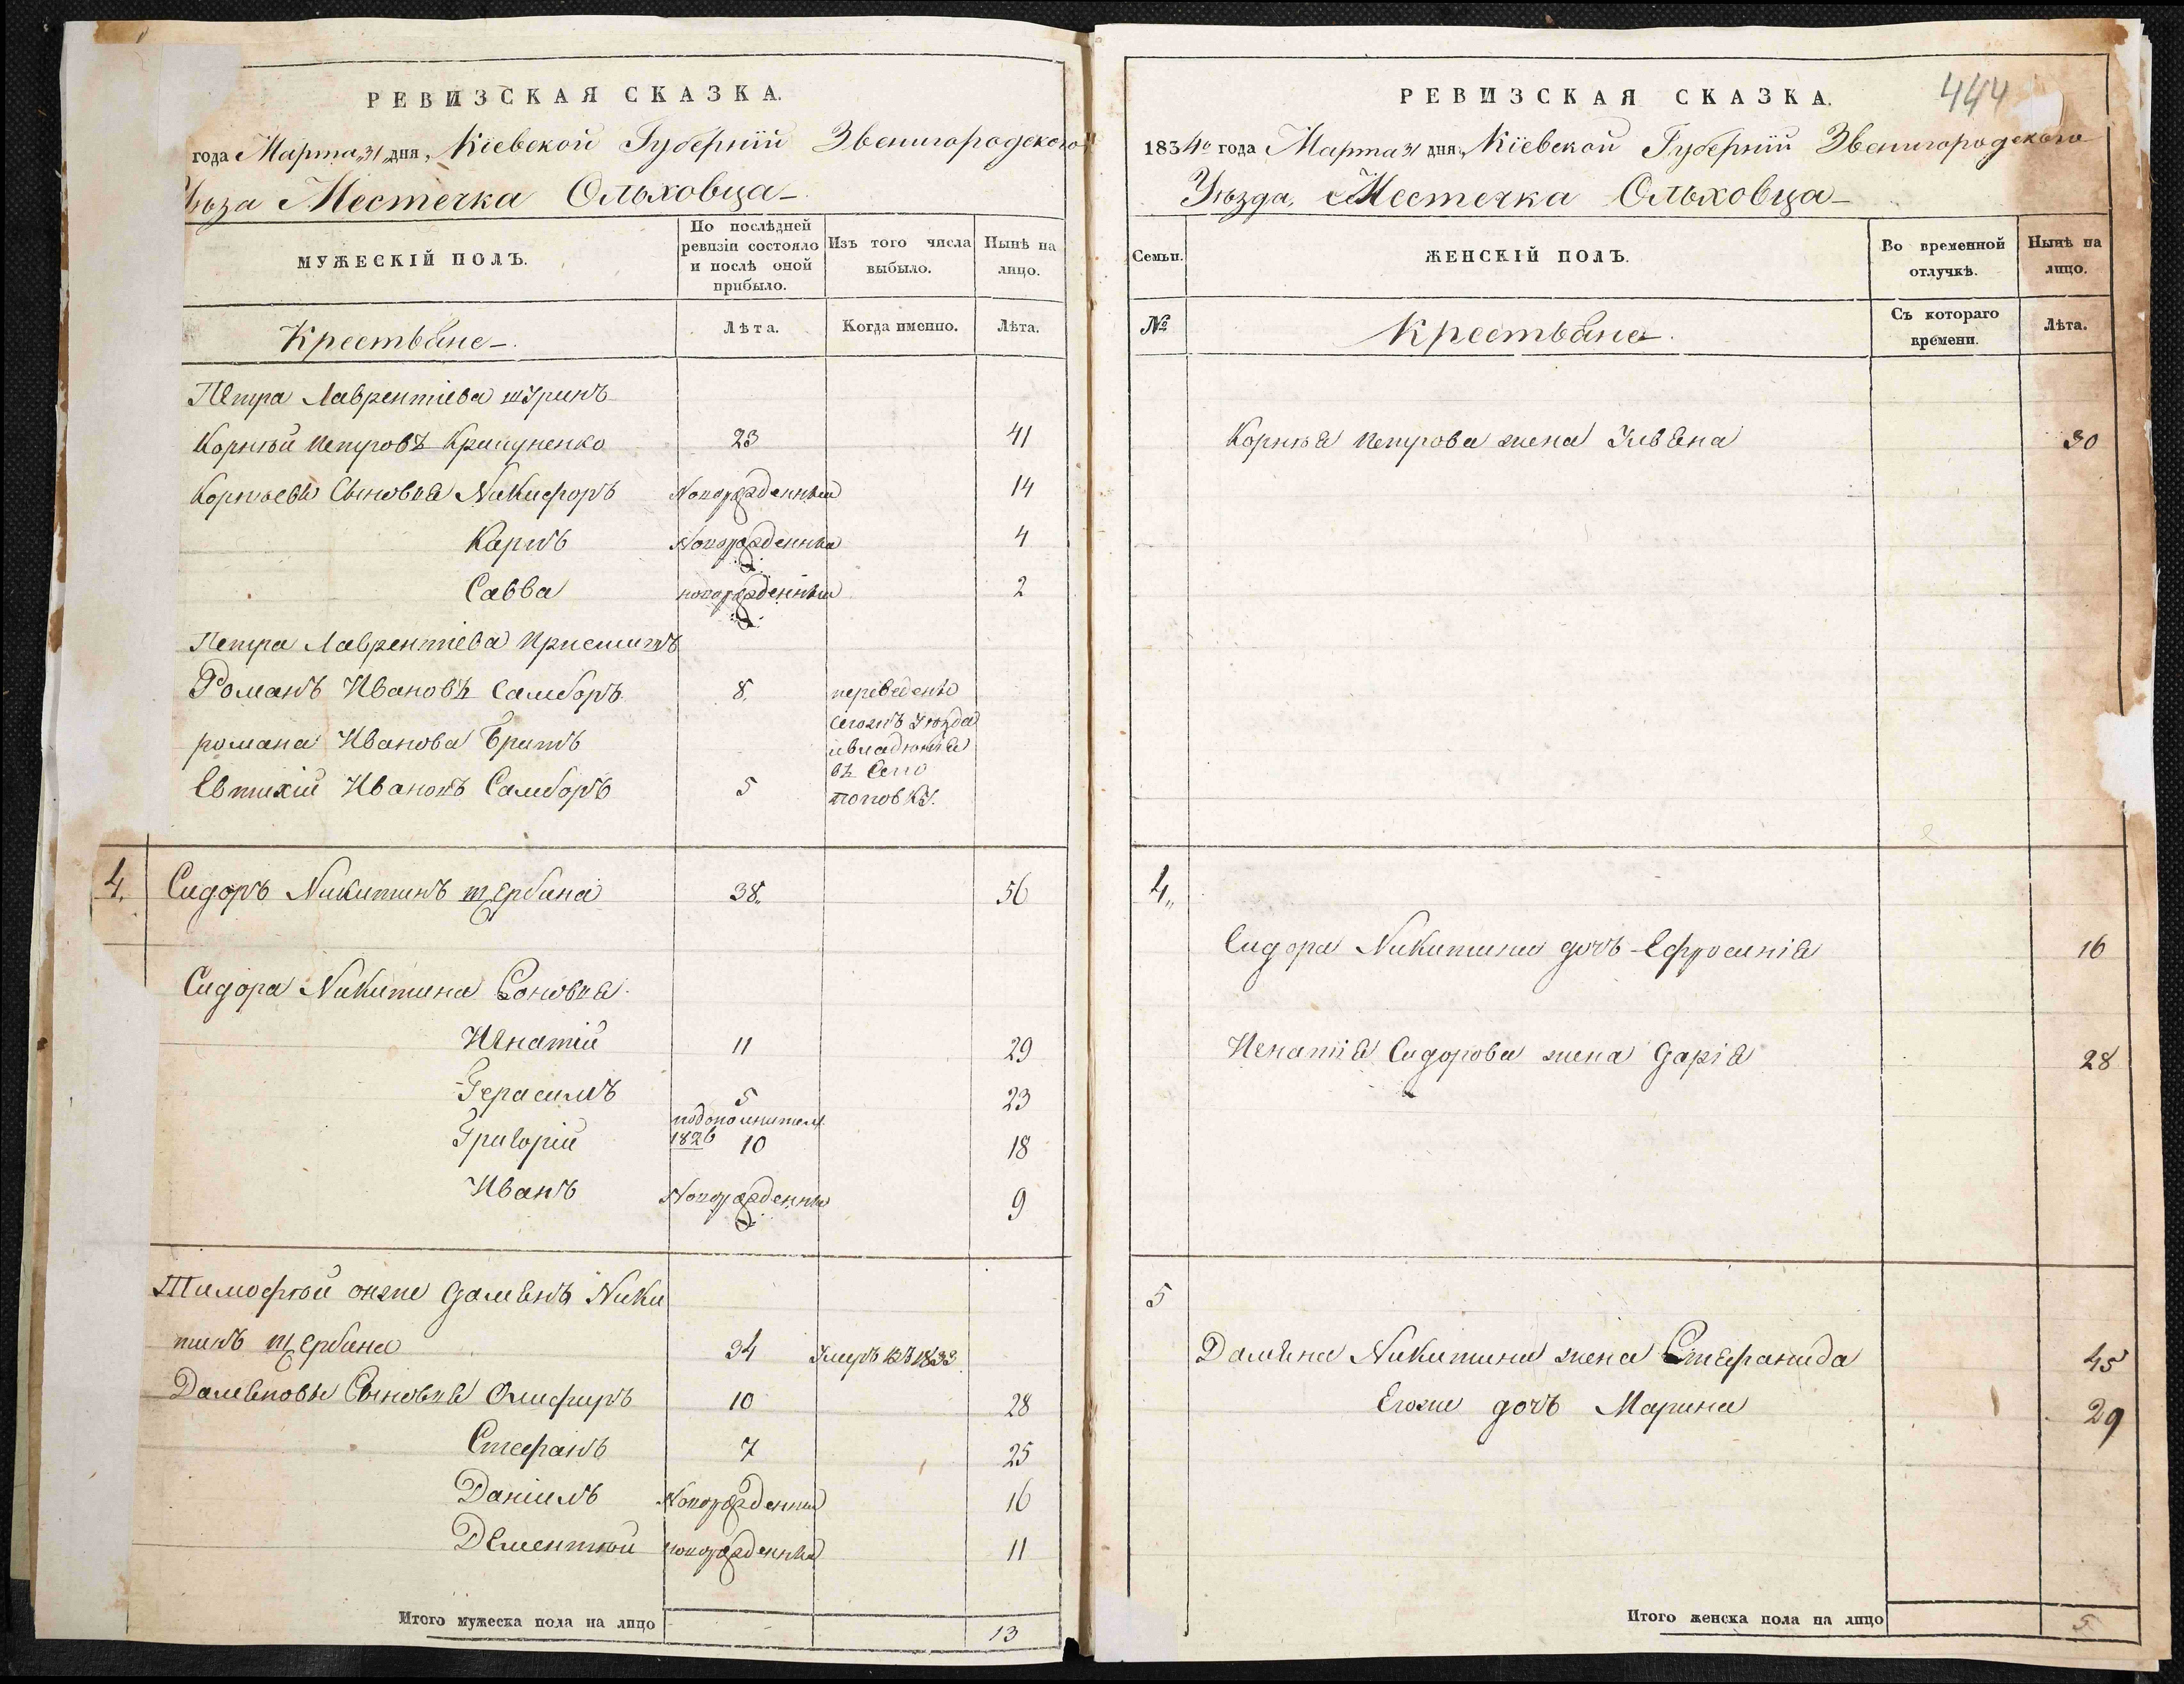 РЕВИЗСКАЯ СКАЗКА.
года Марта 31 дня, Кіевской Губерніи Звенигородского
Уѣзда Местечка Ольховца
МУЖЕСКІЙ ПОЛЪ.
По послѣдней ревизіи состояло и послѣ оной прибыло.
Изъ того числа выбыло.
Нынѣ на лицо.
Крестьяне
Лѣта.
Когда именно.
Лѣта.
Петра Лаврентіева шуринъ
Корнѣй Петровъ 23 41
Корнѣевы Сыновья Никифоръ Новорожденный 14
Карпъ Новорожденный 4
Савва новорожденный 2
Петра Лаврентіева
Романъ Ивановъ Самборъ 8. переведены
Сегожъ Уѣзда
романа Иванова Братъ
въ Село
Евтихій Ивановъ Самборъ 5 Поповку.
4. Сидоръ Никитинъ щербина 38. 56
Сидора Никитина Соновья
Игнатій 11 29
Герасимъ 5 23
Григорій 1826 10 18
Иванъ Новорожденный 9
Тимофѣй онже Дамянъ Ники
тинъ щербина 34 Умеръ 1833
Дамяновы Сыновья Олифиръ 10 28
Стефанъ 7 25
Даніилъ Новорожденный 16
Дементѣй новорожденный 11
Итого мужеска пола на лицо 13
444
РЕВИЗСКАЯ СКАЗКА.
1834го года Марта 31 дня, Кіевской Губерніи Звенигородского
Уѣзда, Местечка Ольховца
Семьи.
ЖЕНСКІЙ ПОЛЪ.
Во временной отлучкѣ.
Нынѣ на лицо.
№
Крестьяне.
Съ котораго времени.
Лѣта.
Корнѣя Петрова жена Уляна 30
4.
Сидора Никитина дочъ Ефросинія 16
Игнатія Сидорова жена Дарія 28
5
Дамяна Никитина жена Стефанида 45
Егоже дочъ Марина 29
Итого женска пола на лицо 5